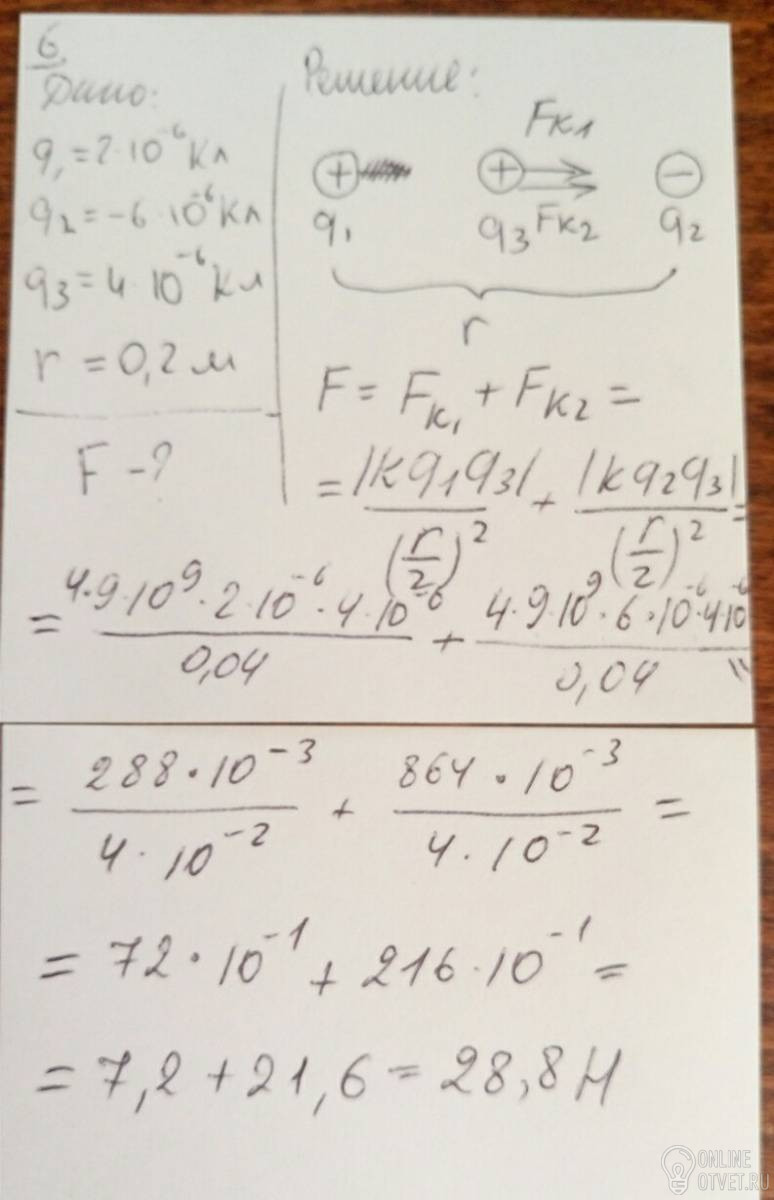 6.
Дано:
q₁=2·10⁻⁶Кл
q₂=-6·10⁻⁶Кл
q₃=4·10⁻⁶Кл
r=0,2м
F-?
Решение:
Fк1
+ + -
q₁ q₃ Fк2 q₂
r
F=Fк₁+Fк₂=
=|kq₁q₃|/(r/2)²+|kq₂q₃|/(r/2)²=
=4·9·10⁹·2·10⁻⁶·4·10⁻⁶/0,04+4·9·10⁹·6·10⁻⁶·4·10⁻⁶/0,04=
=288·10⁻³/4·10⁻²+864·10⁻³/4·10⁻²=
=72·10⁻¹+216·10⁻¹=
=7,2+21,6=28,8Н
ONLINE
OTVET.RU